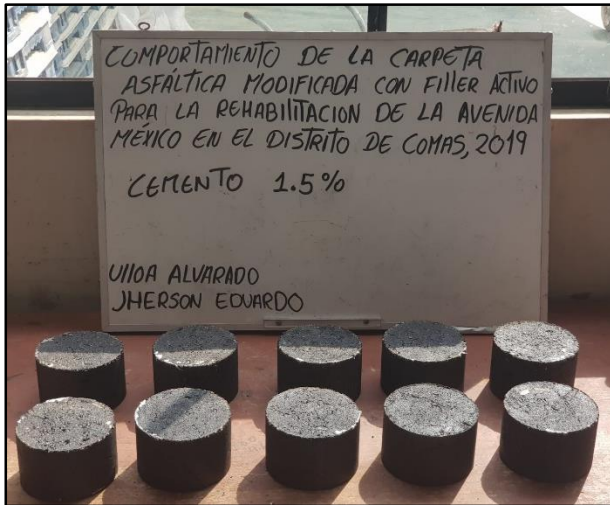 COMPORTAMIENTO DE LA CARPETA
ASFÁLTICA MODIFICADA CON FILLER ACTIVO
PARA LA REHABILITACION DE LA AVENIDA
MÉXICO EN EL DISTRITO DE COMAS, 2019
CEMENTO 1.5%
UllOA ALVARADO
JHERSON EDUARDO